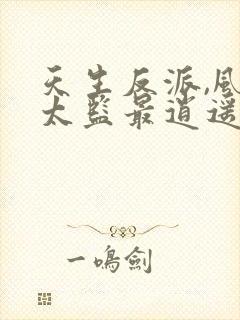 天生反派,風
太監最逍遥
一鳴劍